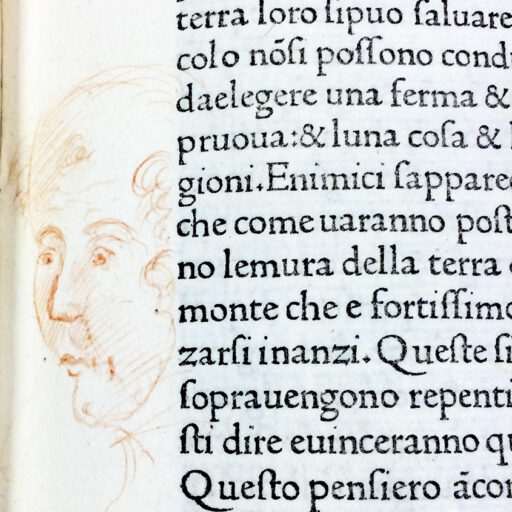 terra loro ſipuo ſaluare
colo nõſi poſſono cond
daelegere una ferma &
pruoua:& luna coſa &
gioni.Enimici ſappare
che come uaranno poſt
no lemura della terra
monte che e fortiſſimo
zarſi inanzi. Queſte ſi
ſoprauengono repenti
ſti dire euinceranno qu
Queſto penſiero ãcor